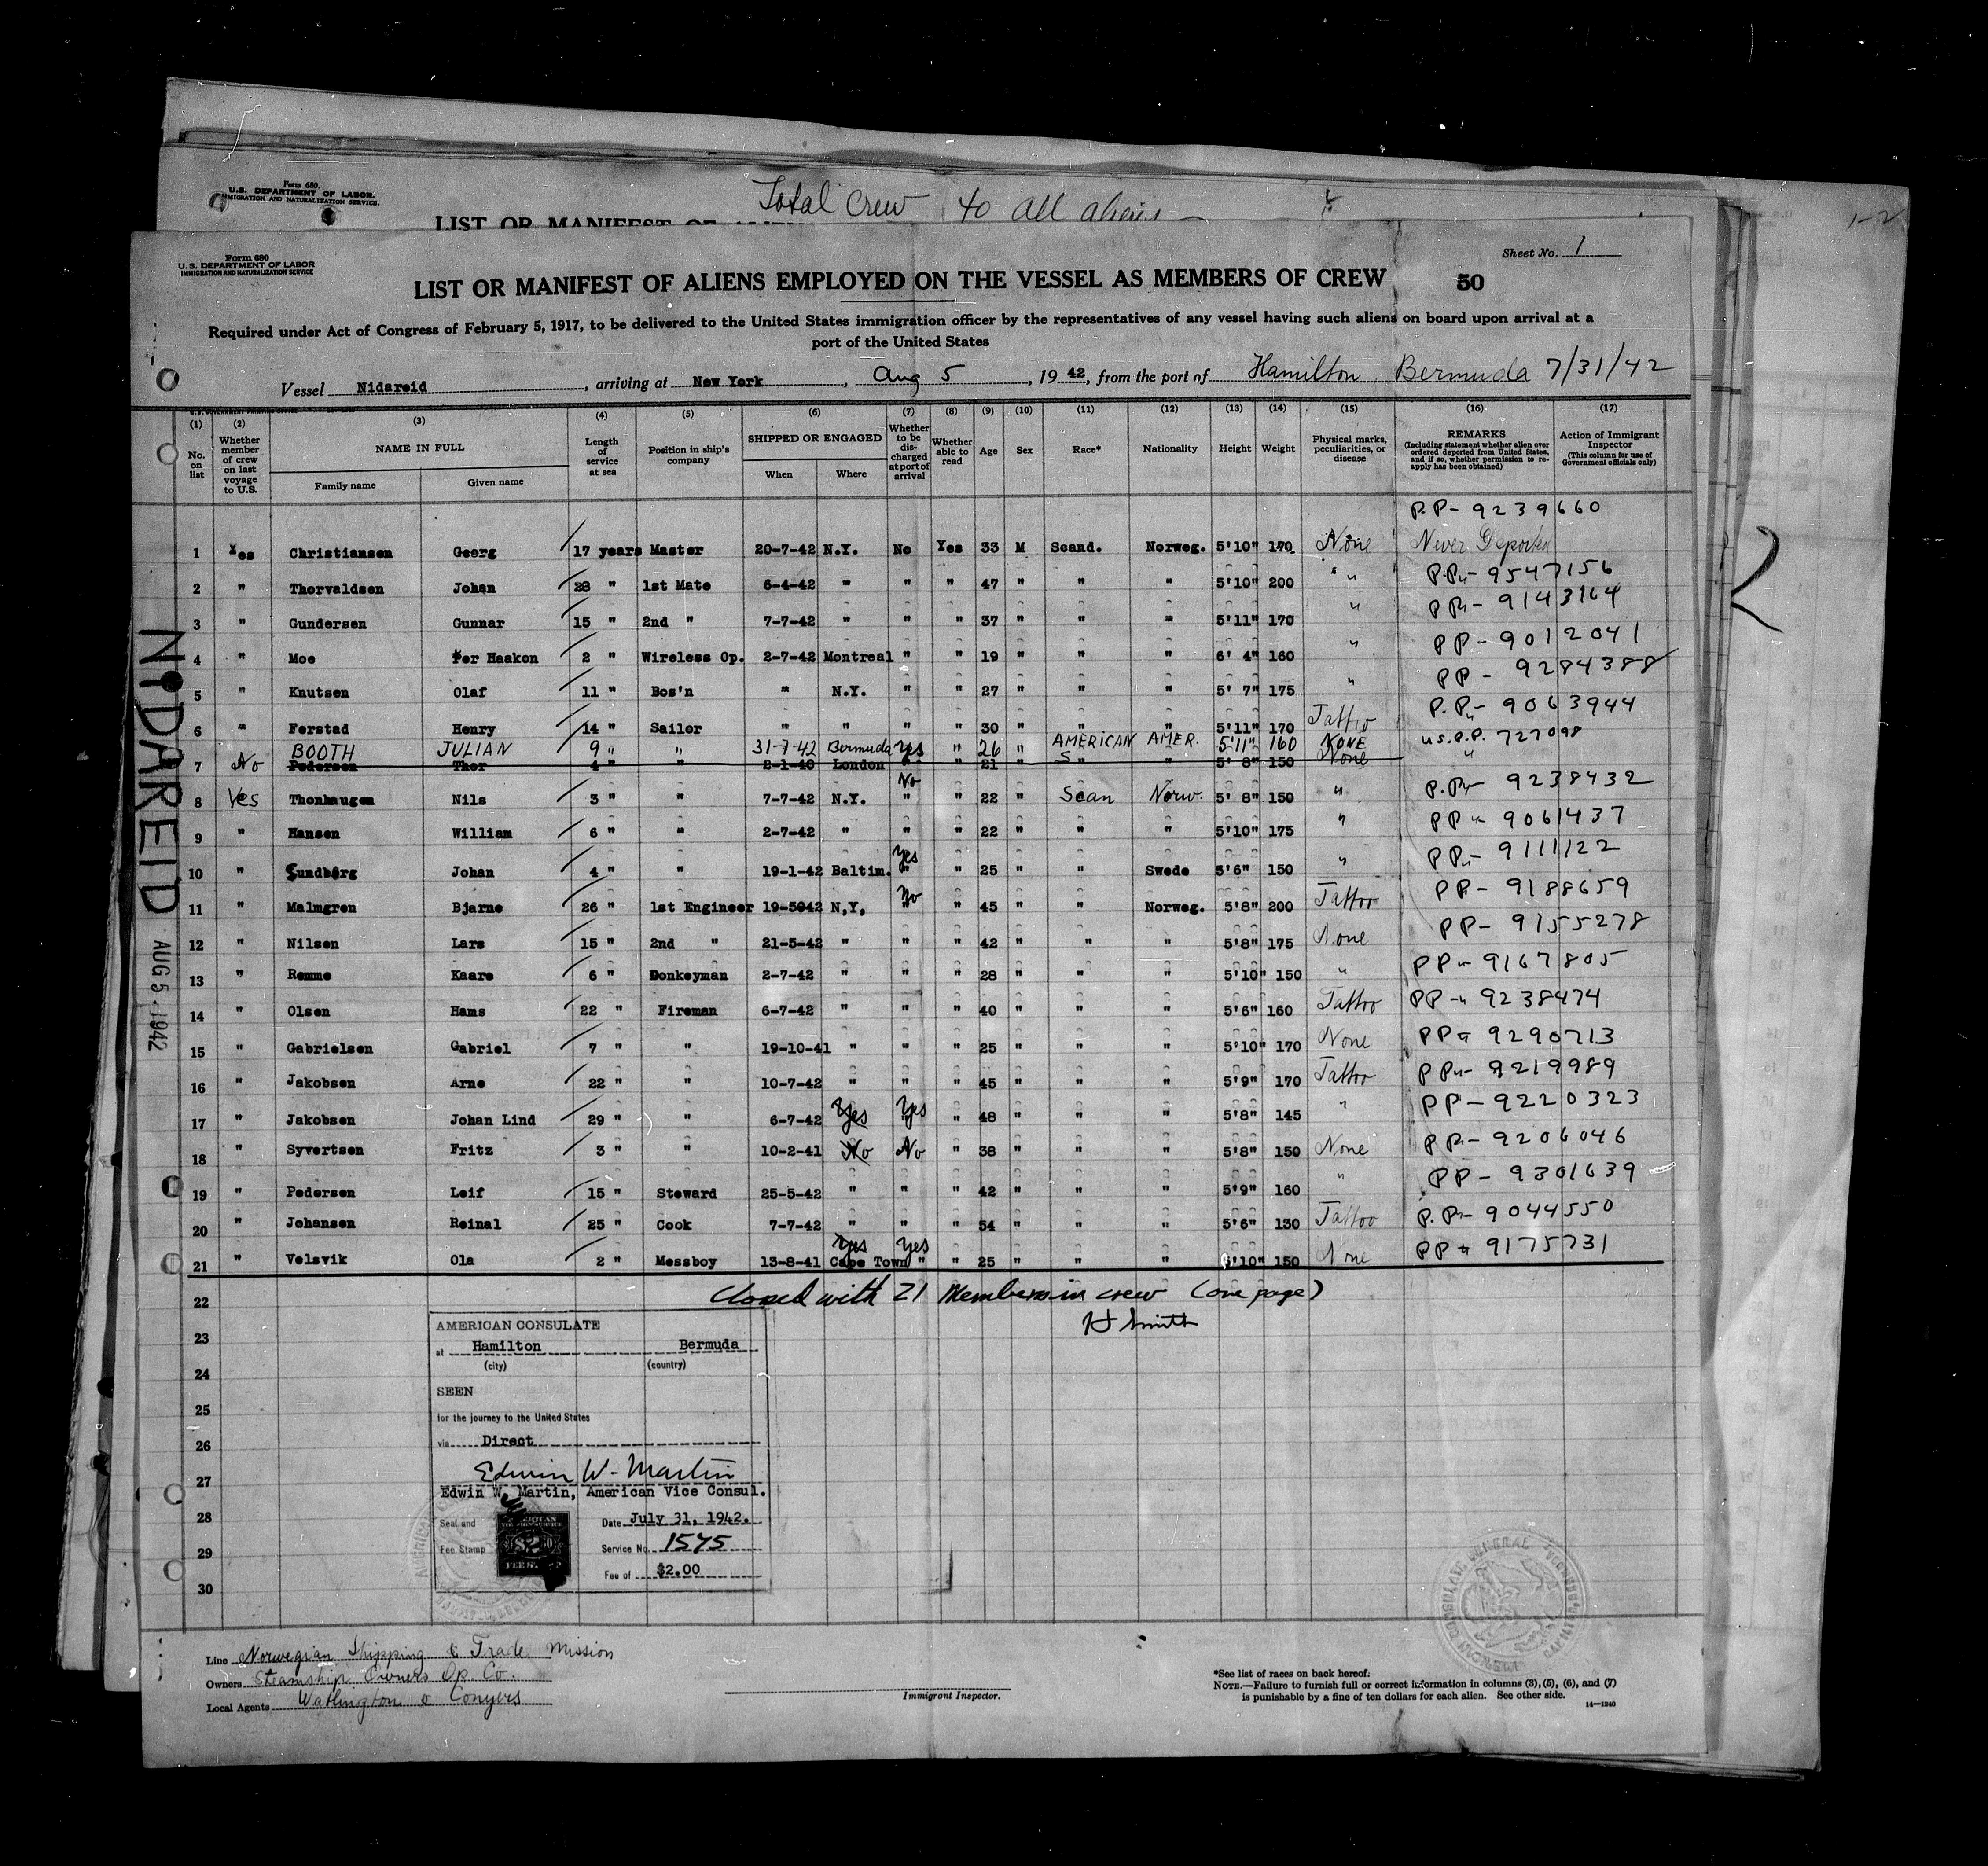 Form 680.
U.S. DEPARTMENT OF LABOR.
IMMIGRATION AND NATURALIZATION SERVICE.
Total Crew 40 all aliens —
LIST OR MANIFEST OF
1-2
Form 680
U. S. DEPARTMENT OF LABOR
IMMIGRATION AND NATURALIZATION SERVICE
Sheet No. 1
LIST OR MANIFEST OF ALIENS EMPLOYED ON THE VESSEL AS MEMBERS OF CREW 50
Required under Act of Congress of February 5, 1917, to be delivered to the United States immigration officer by the representatives of any vessel having such aliens on board upon arrival at a
port of the United States
Vessel Nidareid, arriving at New York, Aug 5, 1942, from the port of Hamilton Bermuda 7/31/42
(1) (2) (3) (4) (5) (6) (7) (8) (9) (10) (11) (12) (13) (14) (15) (16) (17)
No. on list
Whether member of crew on last voyage to U.S.
NAME IN FULL
Family name Given name
Length of service at sea
Position in ship's company
SHIPPED OR ENGAGED
When Where
Whether to be discharged at port of arrival
Whether able to read
Age
Sex
Race*
Nationality
Height
Weight
Physical marks, peculiarities, or disease
REMARKS
(Including statement whether alien ever ordered deported from United States, and if so, whether permission to reapply has been obtained)
Action of Immigrant Inspector
(This column for use of Government officials only)
P.P- 9239660
1 Yes Christiansen Georg 17 years Master 20-7-42 N.Y. No Yes 33 M Scand. Norweg. 5'10" 170 None Never Deported
2 " Thorvaldsen Johan 28 " 1st Mate 6-4-42 " " " 47 " " " 5'10" 200 " P.P.- 9547156
3 " Gundersen Gunnar 15 " 2nd " 7-7-42 " " " 37 " " " 5'11" 170 " PP- 9143164
4 " Moe Per Haakon 2 " Wireless Op. 2-7-42 Montreal " " 19 " " " 6' 4" 160 " PP- 9012041
5 " Knutsen Olaf 11 " Bos'n " N.Y. " " 27 " " " 5' 7" 175 " PP - 9284388
6 " Ferstad Henry 14 " Sailor " " " " 30 " " " 5'11" 170 Tattoo P.P.- 9063944
BOOTH JULIAN 9 " " 31-7-42 Bermuda Yes " 26 " AMERICAN AMER. 5'11" 160 NONE U.S.P.P. 727098
7 No Pedersen Thor 4 " " 2-1-40 London " " 21 " S " " 5' 8" 150 None "
8 Yes Thonhaugen Nils 3 " " 7-7-42 N.Y. No " " 22 " Scan Norw. 5' 8" 150 " P.P- 9238432
9 " Hansen William 6 " " 2-7-42 " " " 22 " " " 5'10" 175 " PP- 9061437
10 " Sundberg Johan 4 " " 19-1-42 Baltim. Yes " " 25 " " Swede 5'6" 150 " PP- 9111122
11 " Malmgren Bjarne 26 " 1st Engineer 19-5042 N.Y. No " " 45 " " Norweg. 5'8" 200 Tattoo PP- 9188659
12 " Nilsen Lars 15 " 2nd " 21-5-42 " " " 42 " " " 5'8" 175 None PP- 9155278
13 " Remme Kaare 6 " Donkeyman 2-7-42 " " " 28 " " " 5'10" 150 " PP- 9167805
14 " Olsen Hans 22 " Fireman 6-7-42 " " " 40 " " " 5'6" 160 Tattoo PP- 9238474
15 " Gabrielsen Gabriel 7 " " 19-10-41 " " " 25 " " " 5'10" 170 None PP- 9290713
16 " Jakobsen Arne 22 " " 10-7-42 " " " 45 " " " 5'9" 170 Tattoo PP- 9219989
17 " Jakobsen Johan Lind 29 " " 6-7-42 Yes Yes " 48 " " " 5'8" 145 " PP- 9220323
18 " Syvertsen Fritz 3 " " 10-2-41 No No " 38 " " " 5'8" 150 None PP- 9206046
19 " Pedersen Leif 15 " Steward 25-5-42 " " " 42 " " " 5'9" 160 " PP- 9301639
20 " Johansen Reinal 25 " Cook 7-7-42 " " " 54 " " " 5'6" 130 Tattoo P.P- 9044550
21 " Velsvik Ola 2 " Messboy 13-8-41 Yes Cape Town Yes " " 25 " " " 5'10" 150 None PP- 9175731
22 Closed with 21 Members in crew (one page)
23 H Smith
24
25
26
27
28
29
30
AMERICAN CONSULATE
at Hamilton Bermuda
(city) (country)
SEEN
for the journey to the United States
via Direct
Edwin W. Martin
Edwin W. Martin, American Vice Consul.
Seal and Fee Stamp
Date July 31, 1942.
Service No. 1575
Fee of $2.00
NIDAREID
AUG 5 - 1942
2
Line Norwegian Shipping & Trade Mission
Owners Steamship Owners Op. Co.
Local Agents Watlington & Conyers
Immigrant Inspector.
*See list of races on back hereof.
NOTE.—Failure to furnish full or correct information in columns (3), (5), (6), and (7)
is punishable by a fine of ten dollars for each alien. See other side.
14—1240